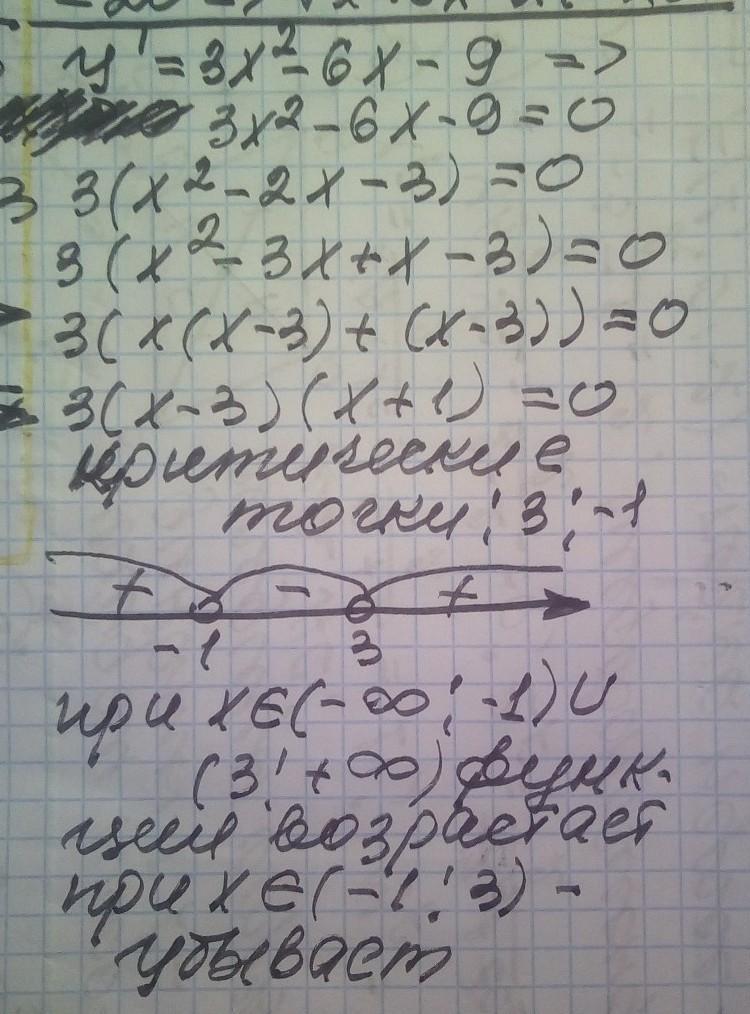 y' = 3x² - 6x - 9 =>
3x² - 6x - 9 = 0
3 3(x² - 2x - 3) = 0
3(x² - 3x + x - 3) = 0
3(x(x-3) + (x-3)) = 0
3(x-3)(x+1) = 0
критические
точки: 3; -1
+ - +
-1 3
при x∈(-∞; -1)∪
(3; +∞) функ-
ция возрастает
при x∈(-1; 3) -
убывает